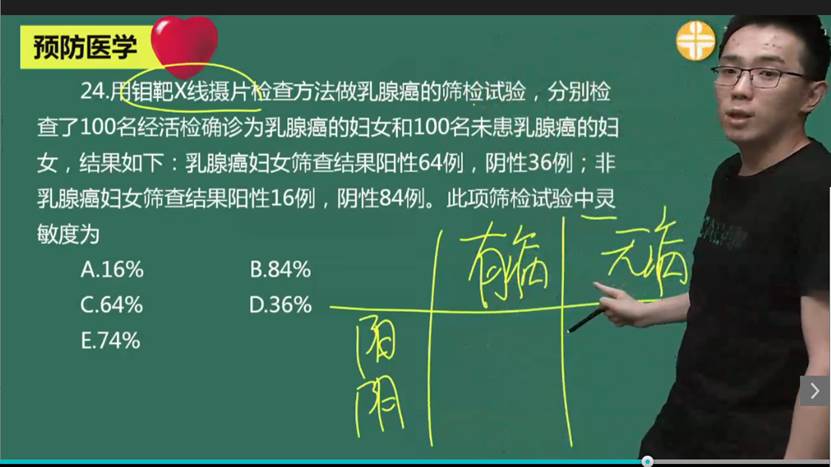 预防医学
24.用钼靶X线摄片检查方法做乳腺癌的筛检试验，分别检
查了100名经活检确诊为乳腺癌的妇女和100名未患乳腺癌的妇
女，结果如下：乳腺癌妇女筛查结果阳性64例，阴性36例；非
乳腺癌妇女筛查结果阳性16例，阴性84例。此项筛检试验中灵
敏度为
A.16% B.84%
C.64% D.36%
E.74%
有病 无病
阳
阴